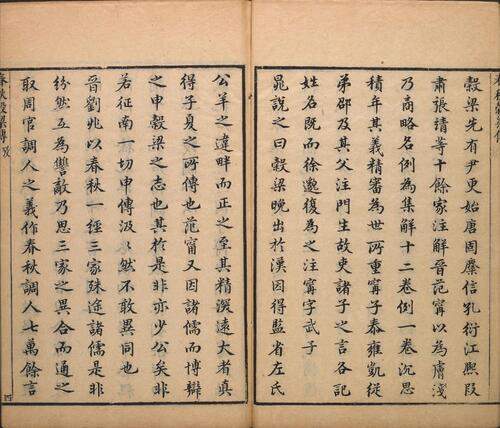 穀梁先有尹更始唐固麋信孔衍江熙段
肅張靖等十餘家注解晉范甯以為膚淺
乃商略名例為集解十二卷例一卷沉思
積年其義精審為世所重甯子泰雍凱從
弟邵及其父注門生故吏諸子之言各記
姓名既而徐邈復為之注甯字武子
晁說之曰穀梁晚出於漢因得監省左氏
公羊之違畔而正之至其精深遠大者真
得子夏之所傳也范甯又因諸儒而博辯
之申穀梁之志也其於是非亦少公矣非
若征南一切申傳汲汲然不敢異同也
晉劉兆以春秋一經三家殊途諸儒是非
紛然互為讐敵乃思三家之異合而通之
取周官調人之義作春秋調人七萬餘言
春秋穀梁傳攷
四